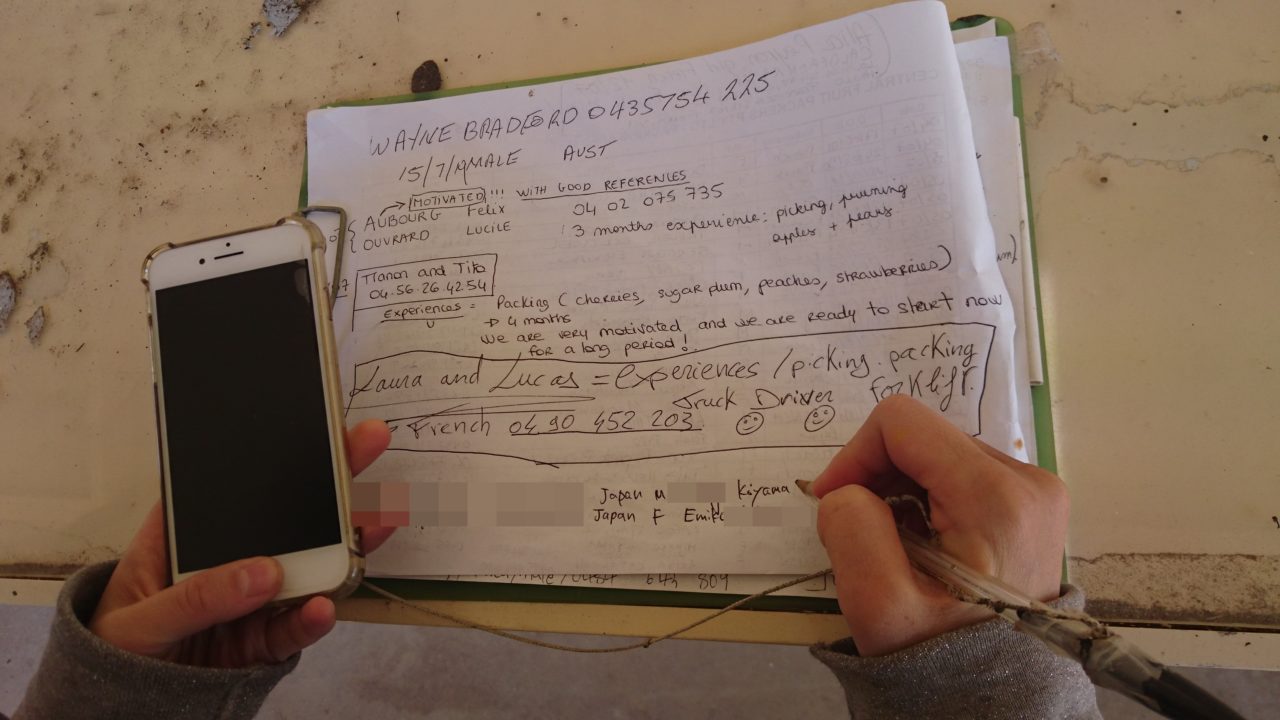 WAYNE BRADFORD 0435754 225
15/7/19 MALE AUST
MOTIVATED !!! WITH GOOD REFERENCES
AUBOURG Felix 04 02 075 735
OUVRARD LUCILE : 3 months experience: picking, pruning
apples + pears
Manon and Tito
04.56.26.42.54
Experiences = Packing (cherries, sugar plum, peaches, strawberries)
→ 4 months
we are very motivated and we are ready to start now
for a long period!
Laura and Lucas = experiences / picking. packing
Truck Driver forklift.
French 04 90 452 203
Japan M Kiyama
Japan F
643 809